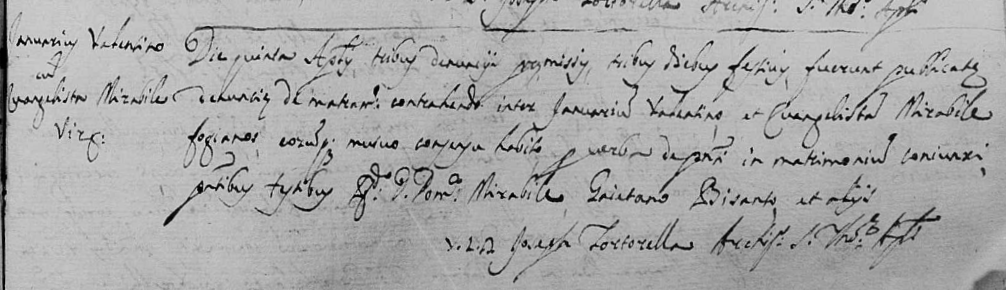 Joseph Tortorella Archip. S. Tho. Apli
Januarius Valentino
cu
Evangelista Mirabile
Virg:
Die quinta Aplis, tribus denunciis premissis, tribus diebus festivis fuerunt publicatę
denuncię de matrim: contrahendo inter Januariu Valentino, et Evangelista Mirabile
fogianos, eorumq: mutuo consensu habito, p verba de pnti in matrimoniu coniunxi,
pntibus testibus Rdo D. Domco Mirabile, Gaietano Bisanto, et aliis
Joseph Tortorella Archip. S. Tho. Apli